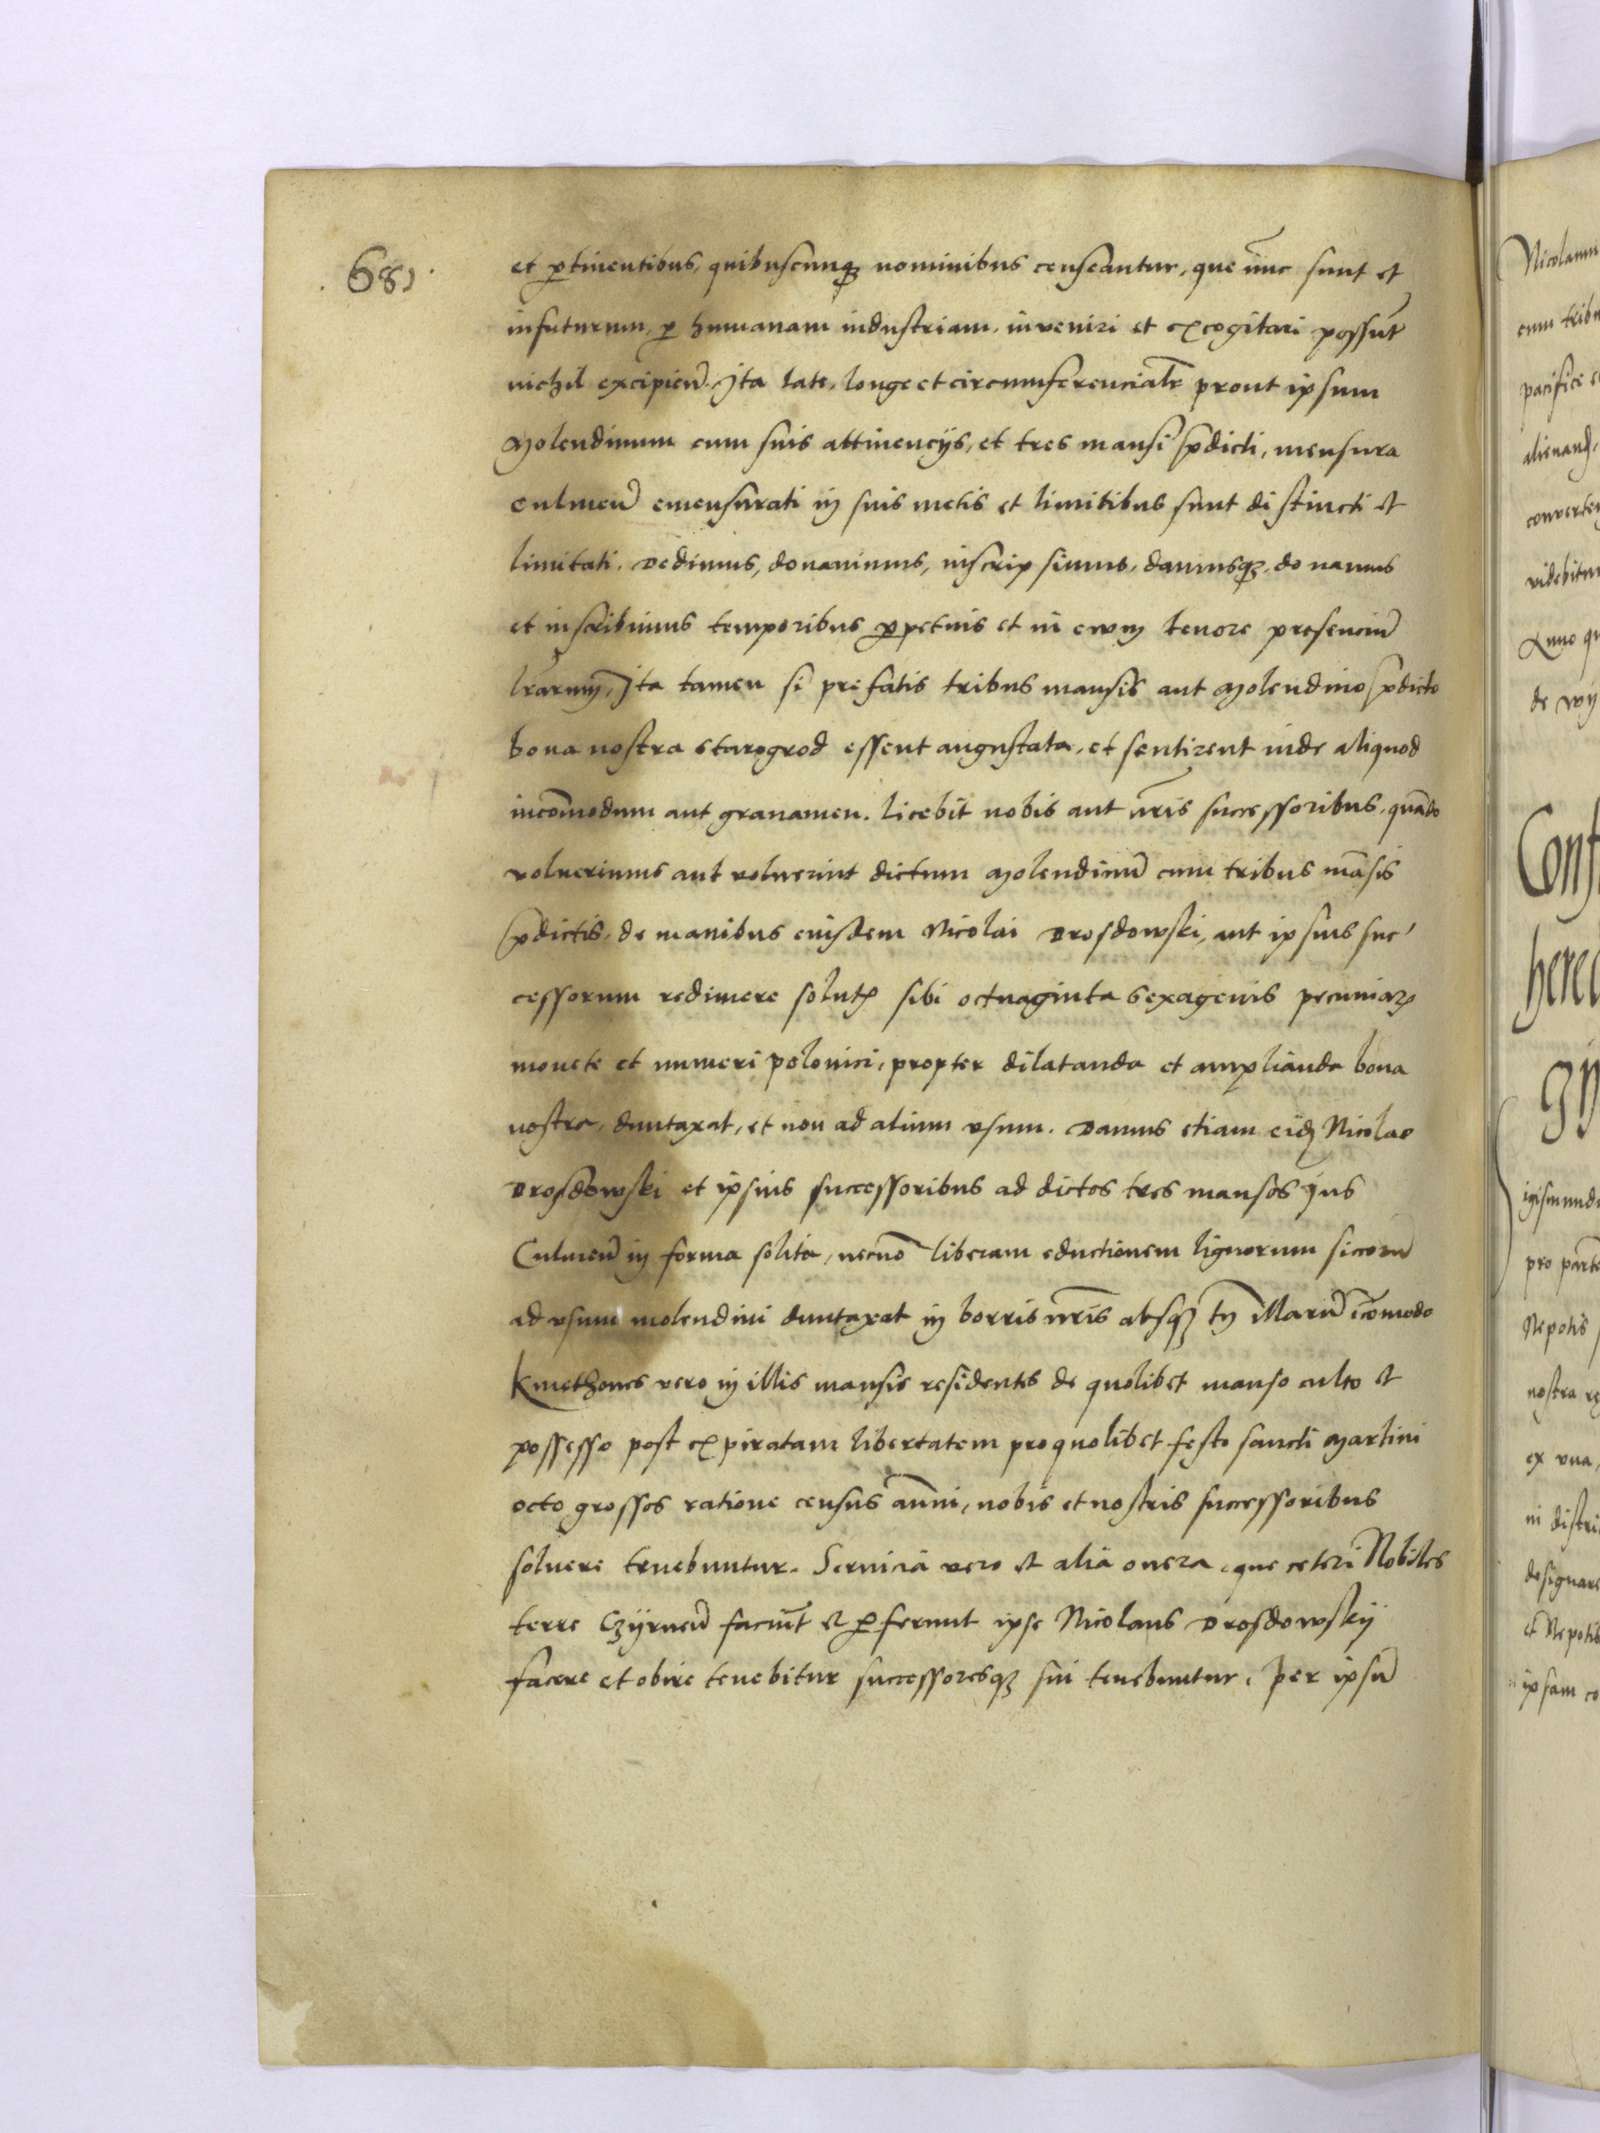 681.
et ꝑtinentibus, quibuscunqꝫ nominibus censeantur, que nūc sunt et
infuturum, ꝑ humanam industriam, inveniri et excogitari possūt
nichil excipien̄. Ita late, longe et circumferencialr̄ prout ipsum
Molendinum cum suis attinencijs, et tres mansi p̄dicti, mensura
culmen̄ emensurati in suis metis et limitibus sunt distincti et
limitati. Dedimus, donavimus, inscripsimus, damusqꝫ, donamus
et inscribimus temporibus ꝑpetuis et in evum tenore presenciū
l̄rarum, Ita tamen si prefatis tribus mansis aut Molendino p̄dicto
bona nostra Starogrod essent angustata, et sentirent inde aliquod
incōmodum aut gravamen. licebit nobis aut nr̄is successoribus, quādo
voluerimus aut voluerint dictum Molendinū cum tribus māsis
p̄dictis, de manibus eiusdem Nicolai Drosdowski, aut ipsius suc
cessorum redimere solutꝭ sibi octuaginta sexagenis pecuniaꝝ
monete et numeri polonici, propter dilatanda et amplianda bona
nostra, duntaxat, et non ad alium usum. Damus etiam eidꝫ Nicolao
Drosdowski et ipsius successoribus ad dictos tres mansos Jus
Culmen̄ in forma solita, necnō liberam eductionem lignorum siccorū
ad usum molendini duntaxat in borris nr̄is absqꝫ tn̄ illarū icōmodo
Kmethones vero in illis mansis residentes de quolibet manso culto et
possesso post expiratam libertatem pro quolibet festo sancti Martini
octo grossos ratione census ānui, nobis et nostris successoribus
solvere tenebuntur. Servicia vero et alia onera, que ceteri Nobiles
terre Czyrnen̄ faciūt et ꝑferunt ipse Nicolaus Drosdowskij
facere et obire tenebitur successoresqꝫ sui tenebuntur, per ipsū
Nicolaum
cum tribu
pacifice
alienand
converten
videbitur
Anno qu
de wy
Conf
hered
gij
igismund
pro parte
Nepotis
nostra re
ex una,
in distri
designare
et Nepotib
ipsam co